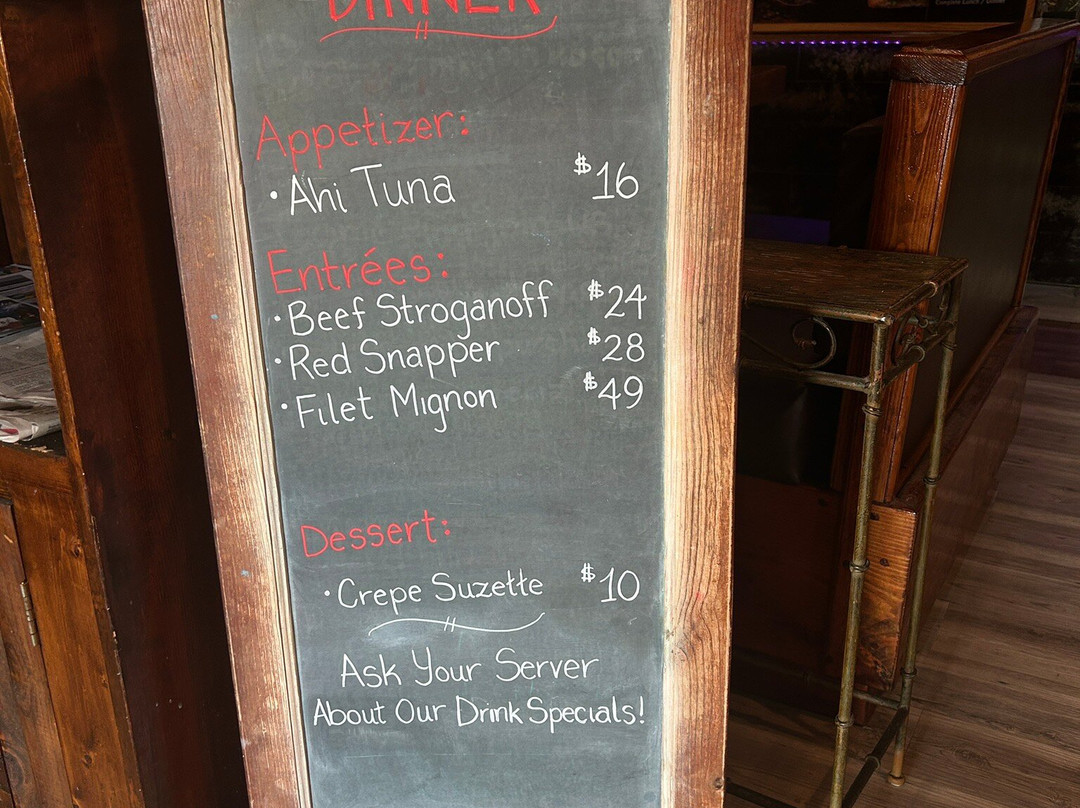 DINNER
Appetizer:
• Ahi Tuna $16
Entrées:
• Beef Stroganoff $24
• Red Snapper $28
• Filet Mignon $49
Dessert:
• Crepe Suzette $10
Ask Your Server
About Our Drink Specials!